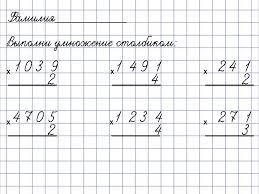 Фамилия
Выполни умножение столбиком:
х 1039 х 1491 х 241
2 4 2
х 4705 х 1234 х 271
2 4 3